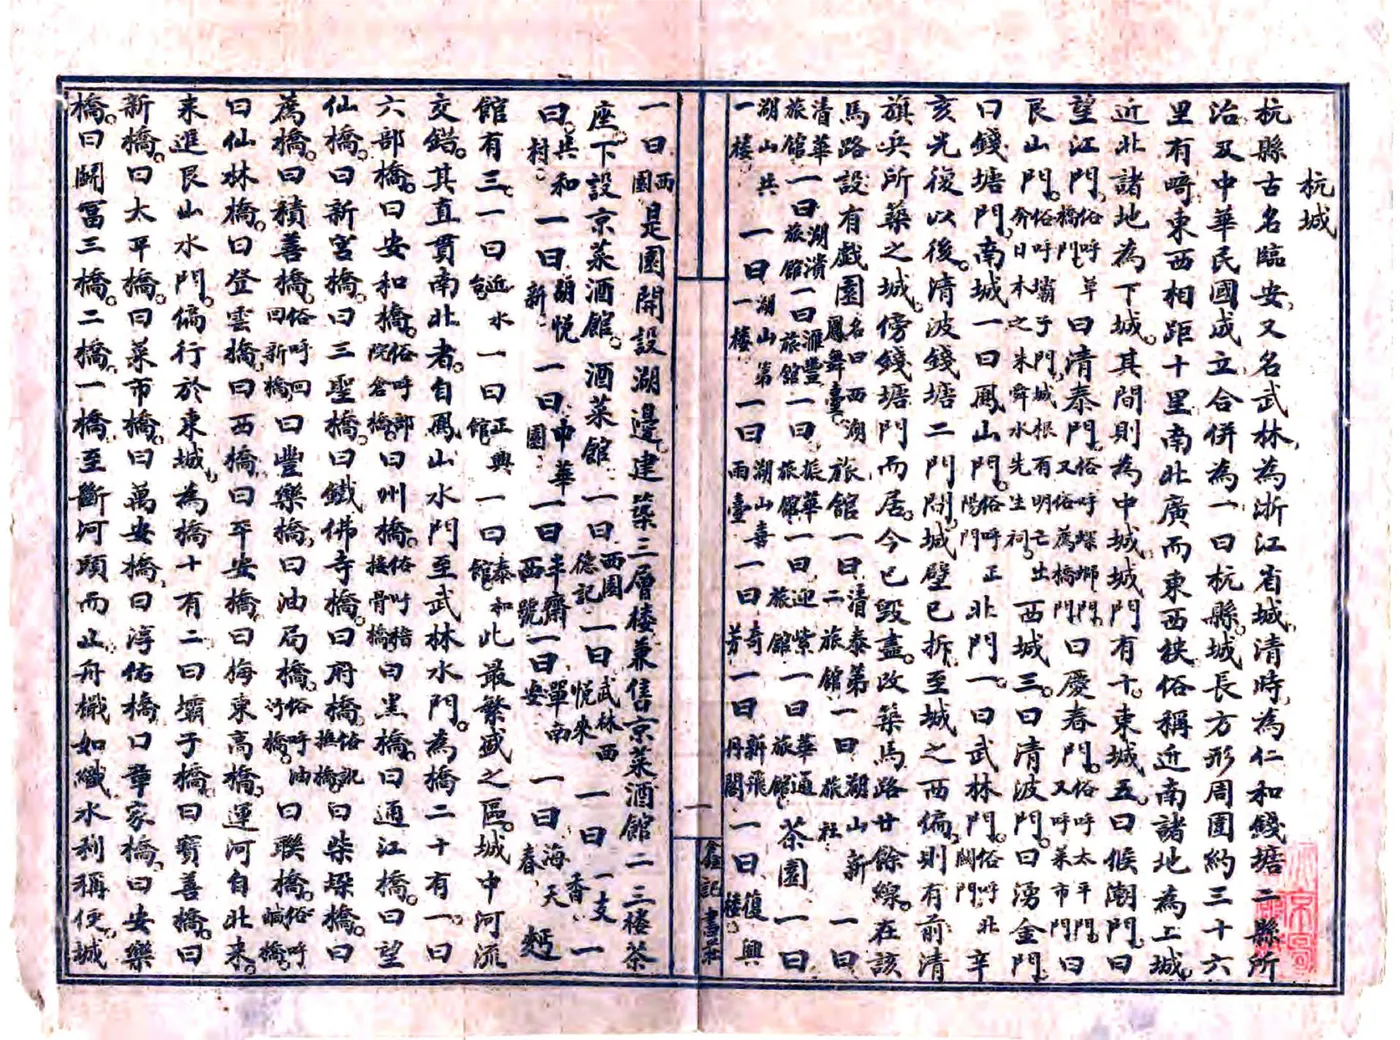 杭城
杭縣古名臨安，又名武林，為浙江省城，清時，為仁和錢塘二縣所
治，及中華民國成立合併為一曰杭縣。城長方形周圍約三十六
里有畸東西相距十里南北廣而東西狹俗稱近南諸地為上城。
近北諸地為下城。其間則為中城，城門有十。東城五。曰候潮門。曰
望江門。俗呼草橋門。曰清泰門。俗呼螺螄門。又俗薦橋門曰慶春門。俗呼太平門。又呼菜市門曰
艮山門。俗呼壩子門，城根有明亡出奔日本之朱舜水先生祠。西城三。曰清波門。曰湧金門。
曰錢塘門，南城一曰鳳山門。俗呼正陽門北門一。曰武林門。俗呼北關門。辛
亥光復以後。清波錢塘二門間，城壁已拆至城之西偏，則有前清
旗兵所築之城。傍錢塘門而居。今已毀盡。改築馬路廿餘線。在該
馬路設有戲園名曰西湖鳳舞臺，旅館一曰清泰第二旅館一曰湖山旅社一曰新
清華旅館一曰湖濱旅館一曰滙豐旅館一曰振華旅館一曰迎紫旅館一曰華通旅館，茶園一曰
湖山共一樓，一曰湖山第一樓一曰湖山喜雨臺一曰奇芳一曰新飛丹閣一曰復興樓。
一曰西園是園開設湖邊建築三層樓兼售京菜酒館二三樓茶
座。下設京菜酒館。酒菜館一曰西園德記一曰武林西悅來一曰一支香一
曰共和村。一曰胡悅新一曰中華園一曰半齋西號一曰單南安一曰海天春，麪
館有三。一曰近水台一曰正興館一曰泰和館此最繁盛之區。城中河流
交錯。其直貫南北者。自鳳山水門至武林水門。為橋二十有一。曰
六部橋。曰安和橋。俗呼部院倉橋。曰州橋。俗呼稽接骨橋曰黑橋。曰通江橋。曰望
仙橋。曰新宮橋。曰三聖橋。曰鐵佛寺橋。曰府橋。俗訛撫橋曰柴垜橋。曰
薦橋。曰積善橋。俗呼回回新橋曰豐樂橋，曰油局橋。俗呼油河橋。曰聯橋。俗呼鹹橋。
曰仙林橋。曰登雲橋，曰西橋，曰平安橋曰梅東高橋，運河自北來。
來進艮山水門。偏行於東城。為橋十有二曰壩子橋曰寶善橋。曰
新橋。曰太平橋。曰菜市橋。曰萬安橋，曰淳佑橋，口章家橋。曰安樂
橋。曰鬬富三橋。二橋，一橋至斷河頭而止舟檝如織水利稱便，城
鑫記書莊
一